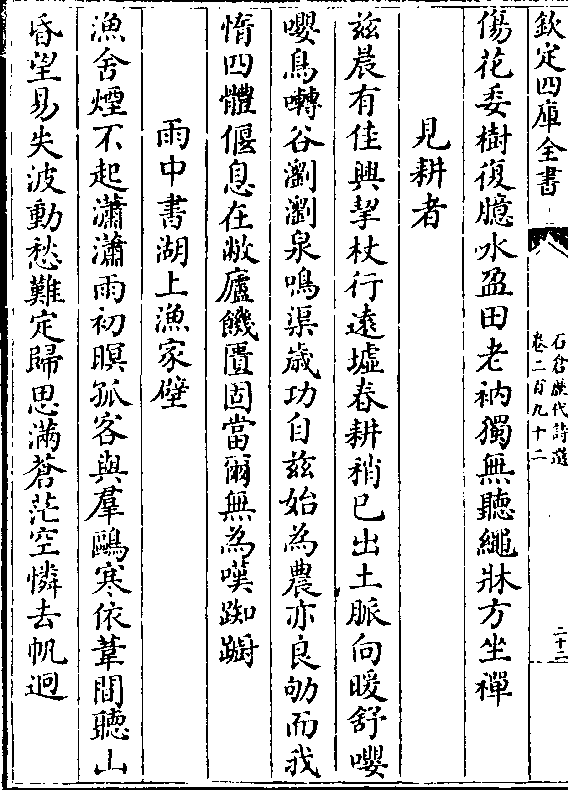 欽定四庫全書
石倉歷代詩選
卷二百九十二
二十二
傷花委樹復臆水盈田老衲獨無聽繩牀方坐禪
見耕者
茲晨有佳興挈杖行遠墟春耕稍已出土脈向暖舒嚶
嚶鳥囀谷瀏瀏泉鳴渠歲功自茲始為農亦良劬而我
惰四體偃息在敝廬饑匱固當爾無為嘆踟躕
雨中書湖上漁家壁
漁舍煙不起瀟瀟雨初暝孤客與羣鷗寒依葦間聽山
昏望易失波動愁難定歸思滿蒼茫空憐去帆迥